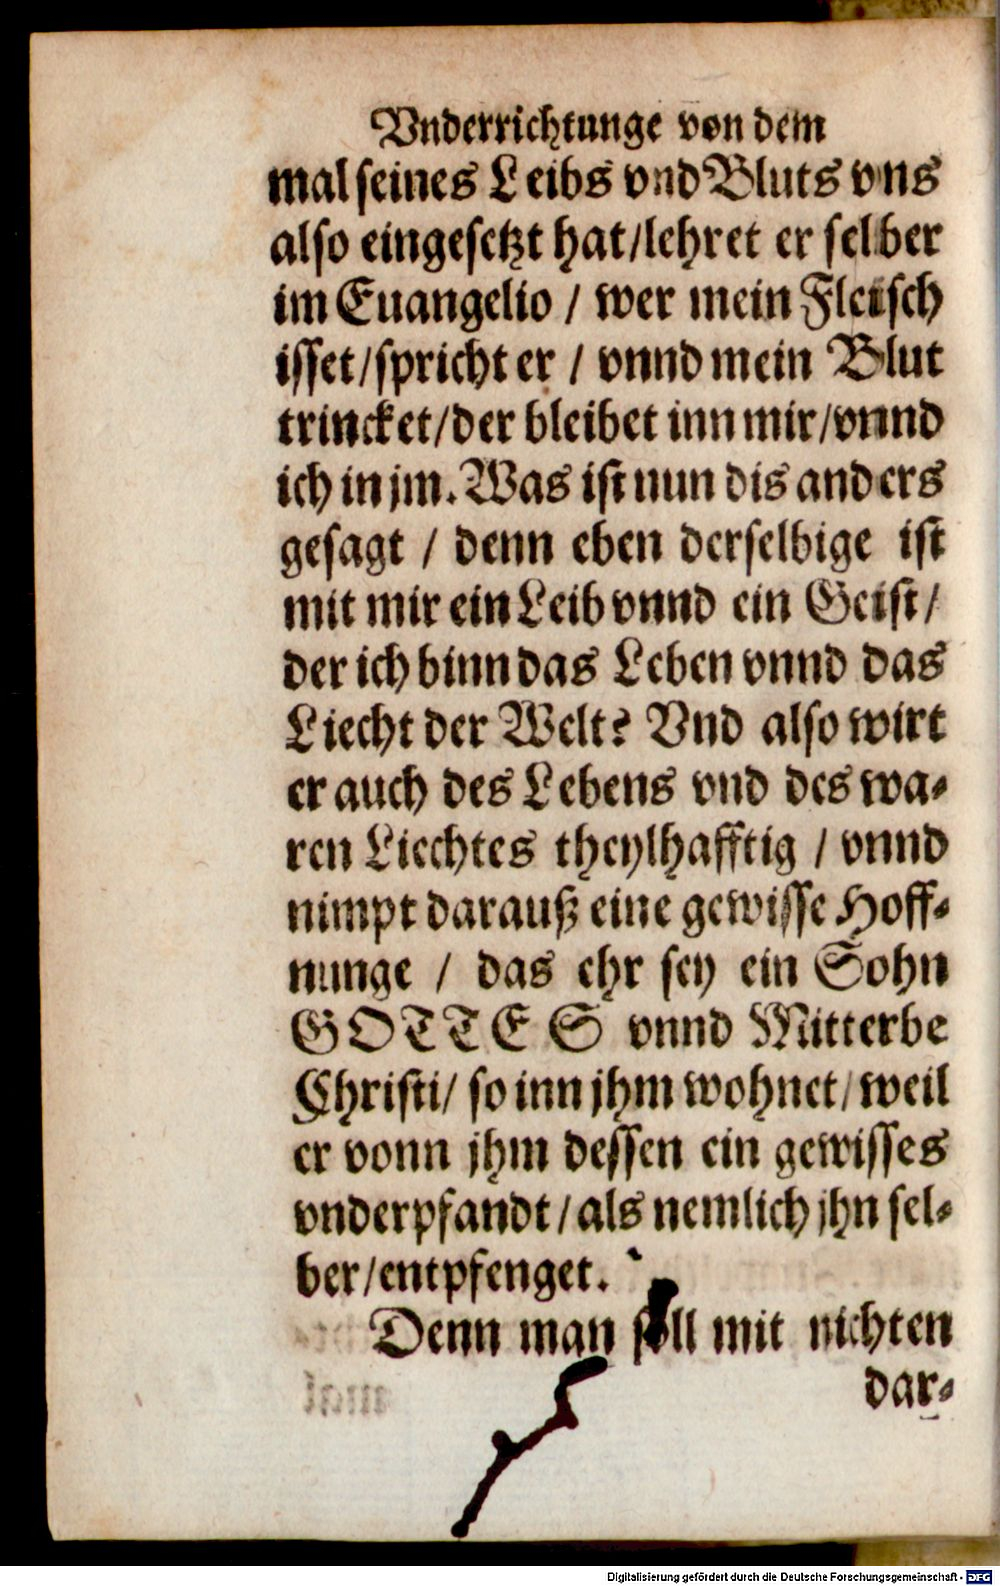 Vnderrichtunge von dem
mal seines Leibs vnd Bluts vns
also eingesetzt hat/lehret er selber
im Euangelio / wer mein Fleisch
isset/spricht er / vnnd mein Blut
trincket/der bleibet inn mir/vnnd
ich in jm. Was ist nun dis anders
gesagt / denn eben derselbige ist
mit mir ein Leib vnnd ein Geist/
der ich binn das Leben vnnd das
Liecht der Welt? Vnd also wirt
er auch des Lebens vnd des wa-
ren Liechtes theylhafftig / vnnd
nimpt darauß eine gewisse Hoff-
nunge / das ehr sey ein Sohn
GOTTES vnnd Mitterbe
Christi/ so inn jhm wohnet/ weil
er vonn jhm dessen ein gewisses
vnderpfandt/als nemlich jhn sel-
ber/entpfenget.
Denn man soll mit nichten
dar-
Digitalisierung gefördert durch die Deutsche Forschungsgemeinschaft - DFG